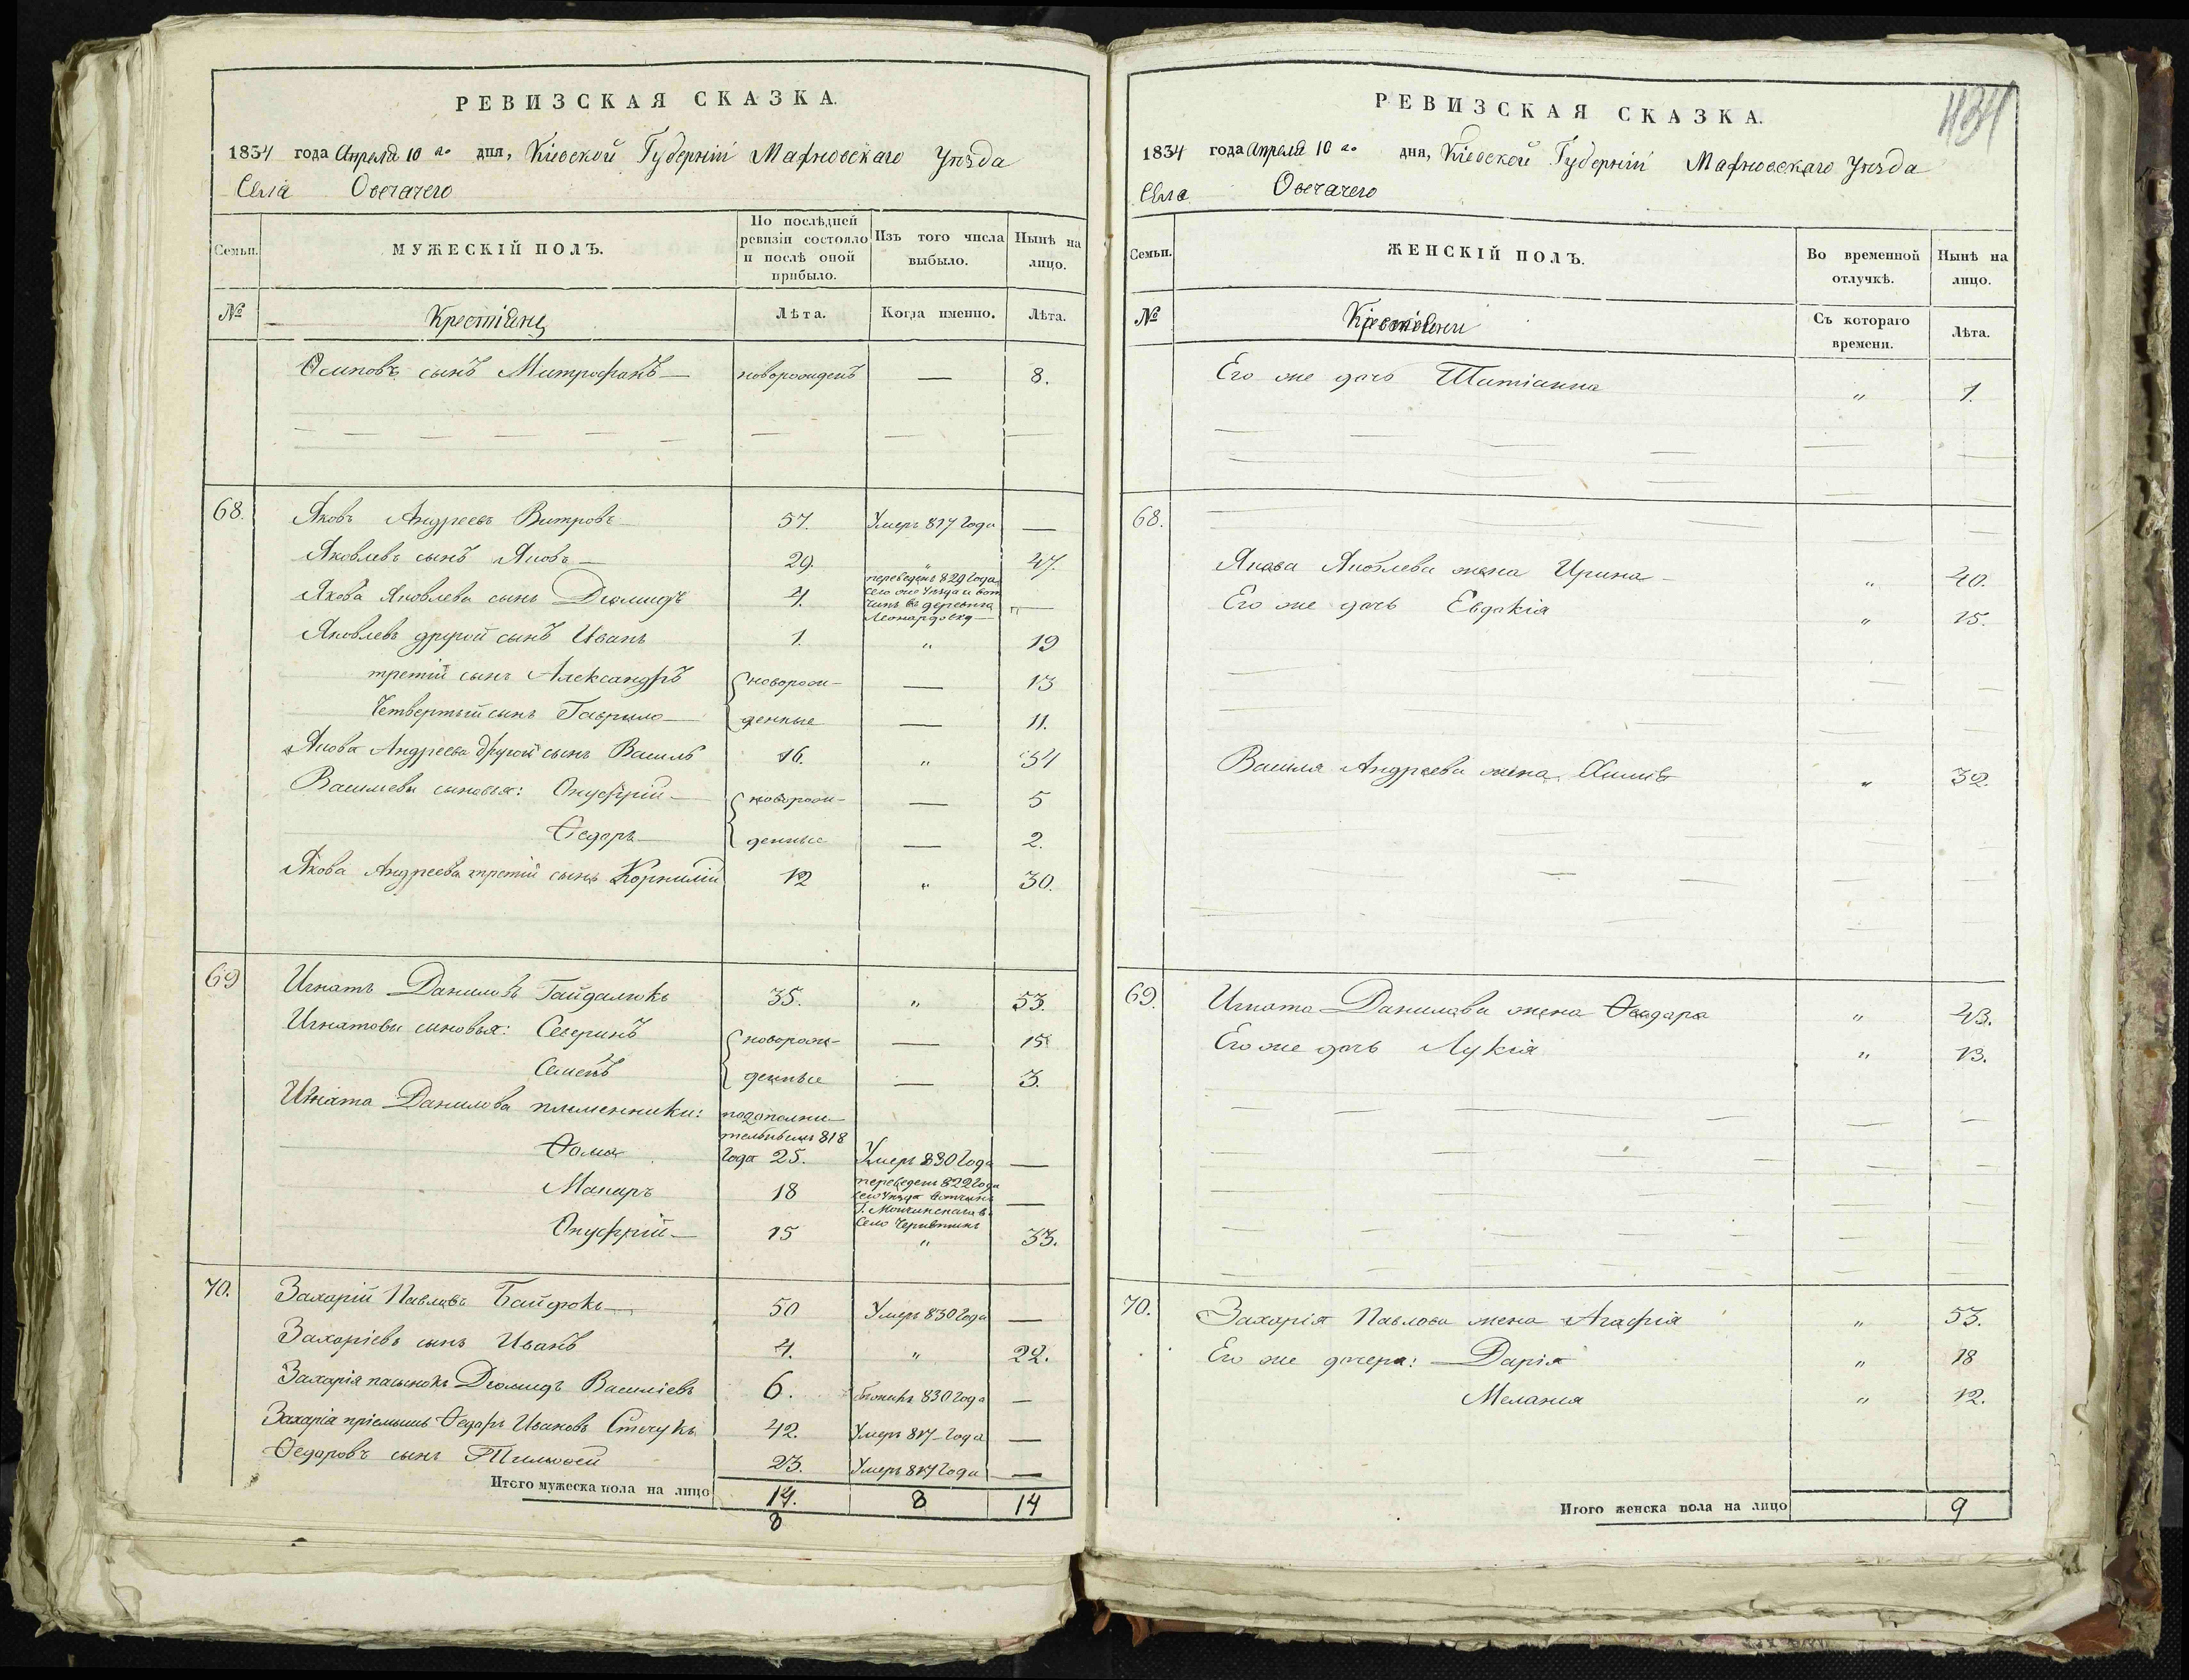 РЕВИЗСКАЯ СКАЗКА.
1834 года Апреля 10 го дня, Кіевской Губерніи Махновскаго Уезда
Села Овечачего
Семьи.
МУЖЕСКІЙ ПОЛЪ.
По послѣдней ревизіи состояло и послѣ оной прибыло.
Изъ того числа выбыло.
Нынѣ на лицо.
№ Крестіяне Лѣта. Когда именно. Лѣта.
Осиповъ сынъ Митрофанъ — новорожденъ — 8.
68. Яковъ Андреевъ Витровъ 57. Умеръ 817 года —
Яковлевъ сынъ Яковъ — 29. " 47.
Якова Яковлева сынъ Дiомидъ 4. переведенъ 829 года сего же Уезда и вот чинъ въ деревню Леонардовку —
Яковлевъ другой сынъ Иванъ 1. " 19
третій сынъ Александръ новорож- — 13
Четвертый сынъ Гаврило — денные — 11.
Якова Андреева другой сынъ Василь 16. " 34
Васильеви сыновья: Онуфрій — новорож- — 5
Федоръ — денные — 2.
Якова Андреева третій сынъ Корнилій 12 " 30.
69 Игнатъ Даниловъ Гайдалюкъ 35. " 53.
Игнатовы сыновья: Северинъ новорож- — 15
Семенъ денные — 3.
Игната Данилова племенники: подополни
тельнымъ 818
Фома года 25. Умеръ 830 года —
Макаръ 18 переведенъ 822 года сего Уезда вотчины Г. Мончинскаго в село —
Онуфрій — 15 " 33.
70. Захарій Павловъ Байдюкъ — 50 Умеръ 830 года —
Захаріевъ сынъ Иванъ 4. " 22.
Захарія пасынокъ Дiомидъ Василіевъ 6. 830 года —
Захарія пріемышъ Федоръ Ивановъ Стечукъ 42. Умеръ 817 года —
Федоровъ сынъ Тимофей 23. Умеръ 817 года —
Итого мужеска пола на лицо 14. 8 14
8
434
РЕВИЗСКАЯ СКАЗКА.
1834 года Апреля 10 го дня, Кіевской Губерніи Махновскаго Уезда
Села Овечачего
Семьи.
ЖЕНСКІЙ ПОЛЪ.
Во временной отлучкѣ.
Нынѣ на лицо.
№ Крестіянки Съ котораго времени. Лѣта.
Его же дочь Татіанна " 1.
68.
Якова Яковлева жена Ирина — " 40.
Его же дочь Евдокія " 15.
Василя Андреева жена " 32.
69. Игната Данилова жена Феодора " 43.
Его же дочь Лукія " 13.
70. Захарія Павлова жена Агафія " 53.
Его же дочери: Дарія " 18
Меланія " 12.
Итого женска пола на лицо 9